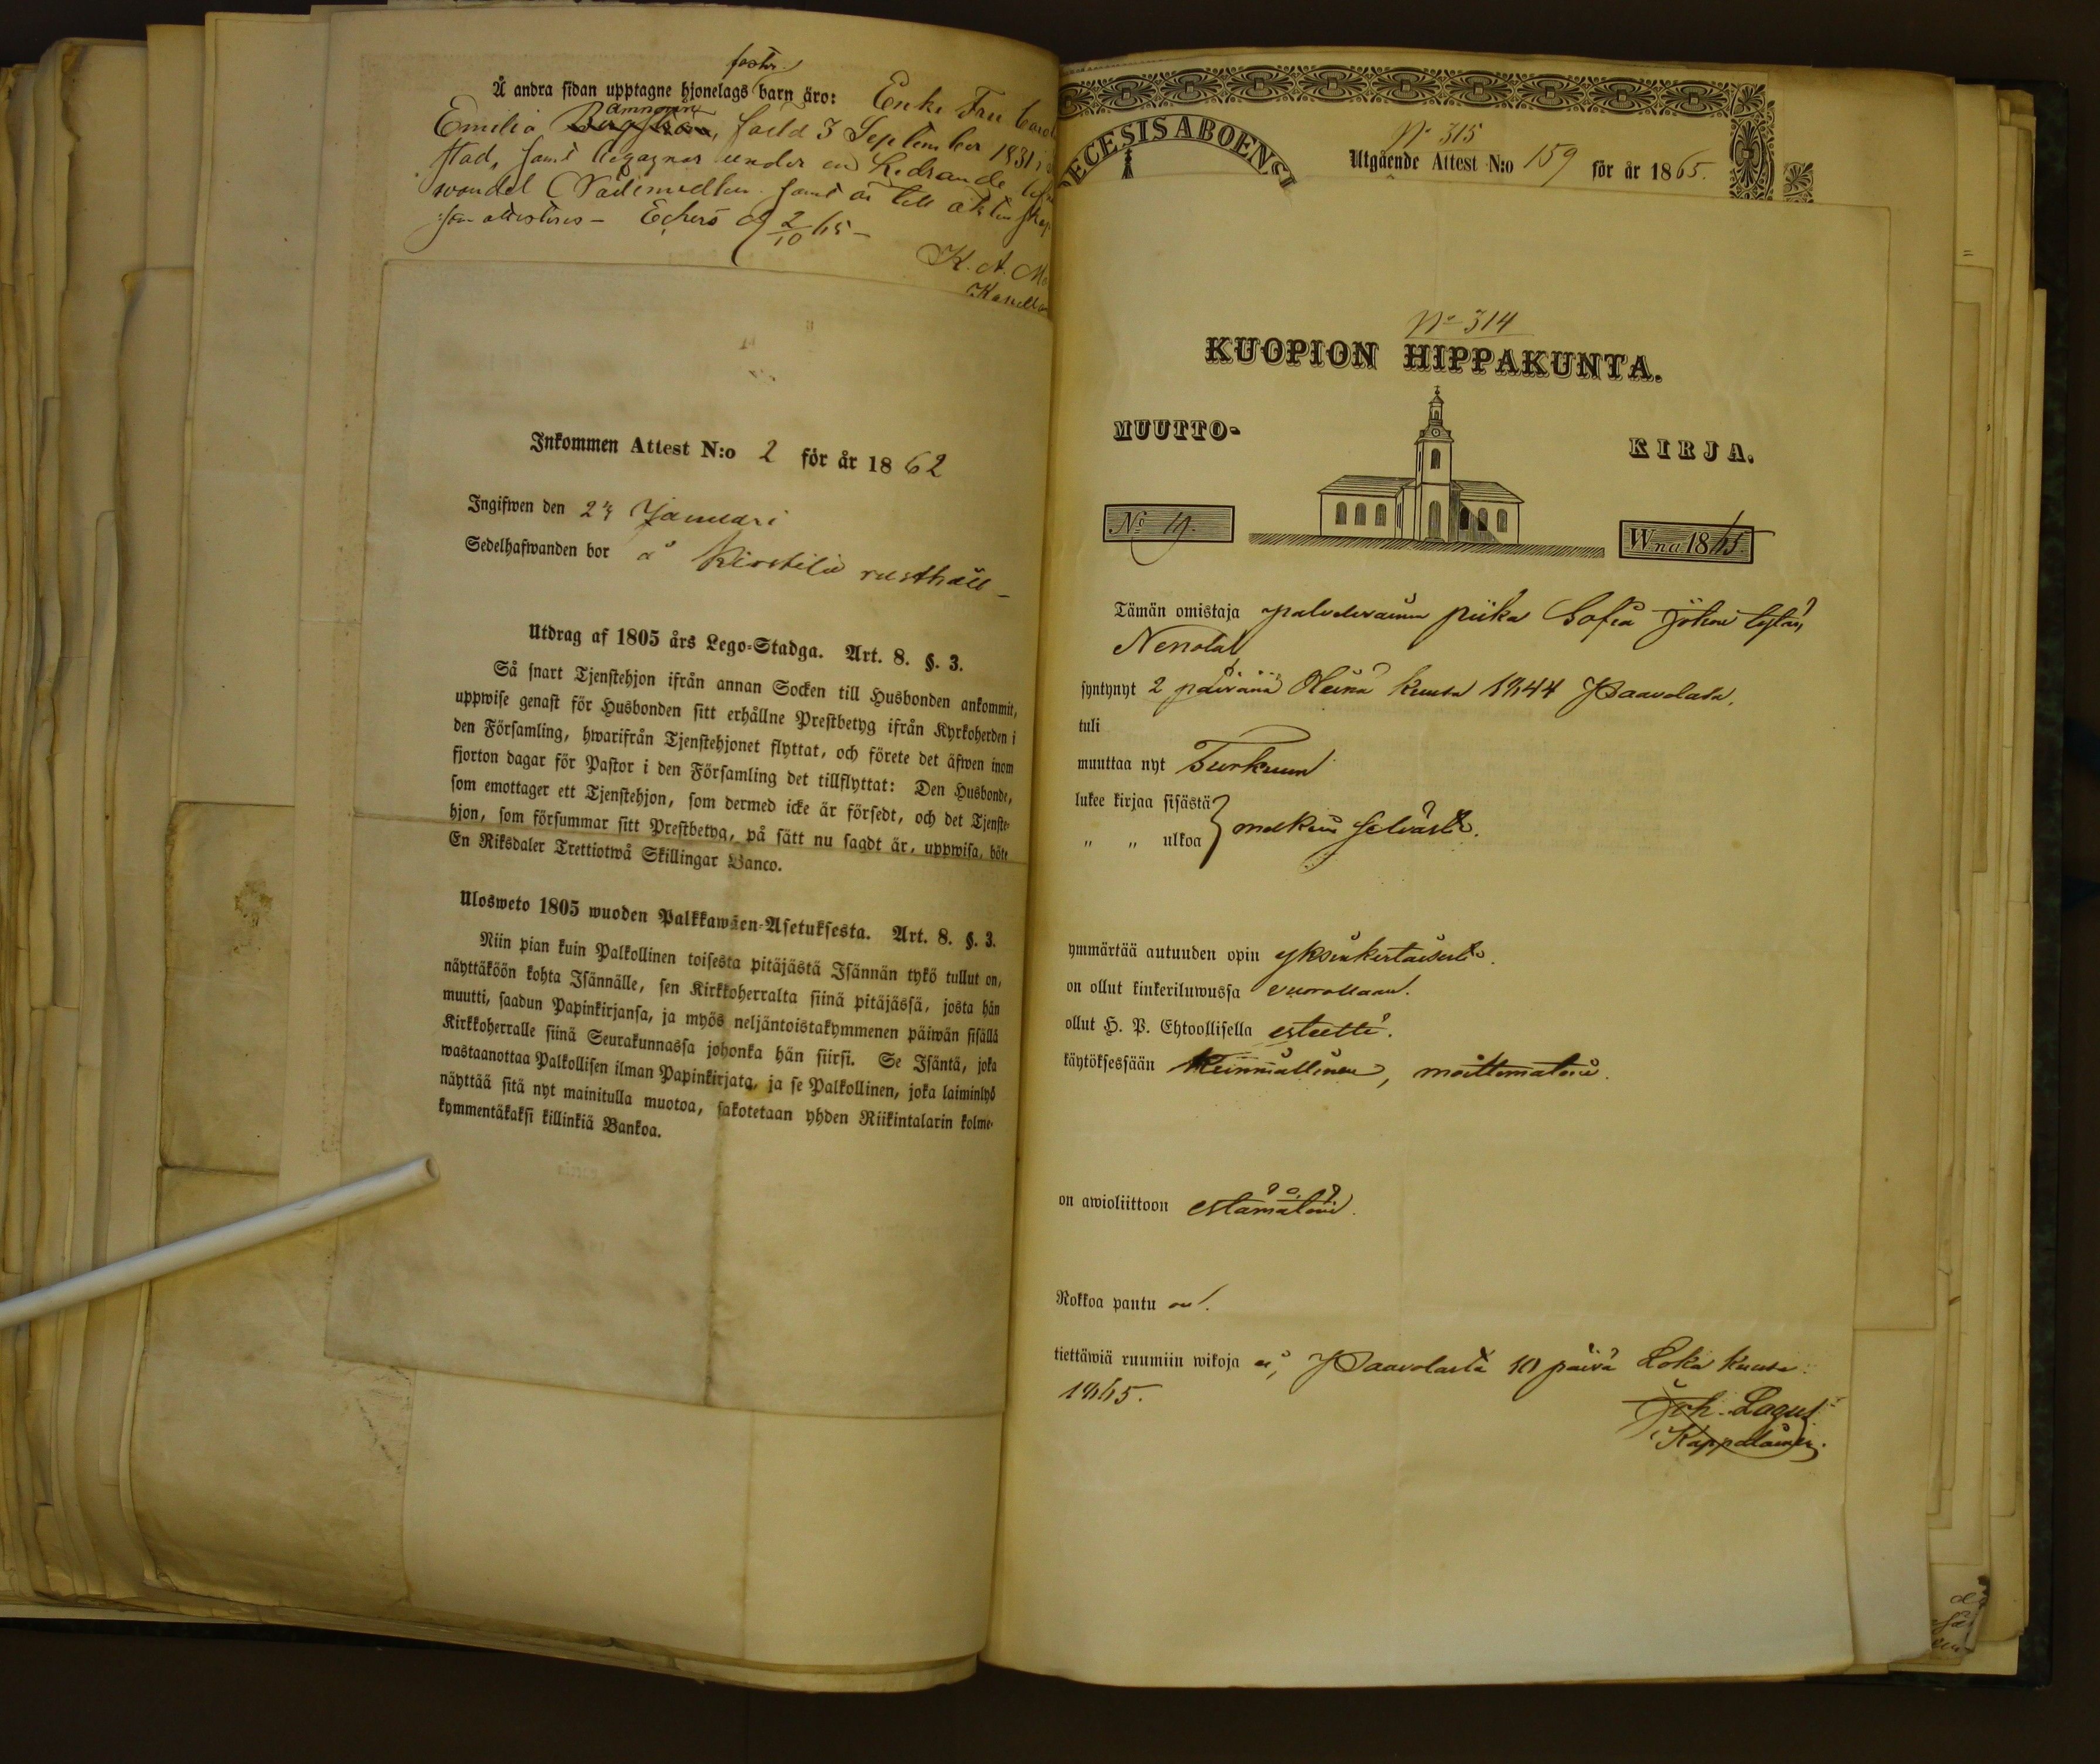 foster
Å andra sidan upptagne hjonelags barn äro: Enke Fru
Emilia född 3 September 1831 i
stad, samt under en
wandel samt är till äktenskap
attesteras – Eckerö d 2/10 65 –
K. A.
Inkommen Attest N:o 2 för år 1862
Ingifwen den 24 Januari
Sedelhafwanden bor å Kirstilä rusthåll –
Utdrag af 1805 års Lego-Stadga. Art. 8. §. 3.
Så snart Tjenstehjon ifrån annan Socken till Husbonden ankommit,
uppwise genast för Husbonden sitt erhållne Prestbetyg ifrån Kyrkoherden i
den Församling, hwarifrån Tjenstehjonet flyttat, och förete det äfwen inom
fjorton dagar för Pastor i den Församling det tillflyttat: Den Husbonde,
som emottager ett Tjenstehjon, som dermed icke är försedt, och det Tjenste-
hjon, som försummar sitt Prestbetyg, på sätt nu sagdt är, uppwisa, böte
En Riksdaler Trettiotwå Skillingar Banco.
Ulosweto 1805 wuoden Palkkawäen-Asetuksesta. Art. 8. §. 3.
Niin pian kuin Palkollinen toisesta pitäjästä Isännän tykö tullut on,
näyttäköön kohta Isännälle, sen Kirkkoherralta siinä pitäjässä, josta hän
muutti, saadun Papinkirjansa, ja myös neljäntoistakymmenen päiwän sisällä
Kirkkoherralle siinä Seurakunnassa johonka hän siirsi. Se Isäntä, joka
wastaanottaa Palkollisen ilman Papinkirjata, ja se Palkollinen, joka laiminlyö
näyttää sitä nyt mainitulla muotoa, sakotetaan yhden Riikintalarin kolme-
kymmentäkaksi killinkiä Bankoa.
ECESIS ABOENSI
N° 315
Utgående Attest N:o 159 för år 1865.
N° 314
KUOPION HIPPAKUNTA.
MUUTTO-
KIRJA.
N° 19.
Wna 1865
Tämän omistaja palvelevainen piika Sofia Johan tytär
Nenola
syntynyt 2 päivänä Heinä kuusa 1844 Paavolasa.
tuli
muuttaa nyt Turkuun
lukee kirjaa sisästä
" " ulkoa } melkein selvästi.
ymmärtää autuuden opin yksinkertaisesti.
on ollut kinkeriluwussa vuorollaan.
ollut H. P. Ehtoollisella esteettä.
käytöksessään kunniallinen, moittematoin.
on awioliittoon estämätöin.
Rokkoa pantu on.
tiettäwiä ruumiin wikoja ei, Paavolasta 10 päivä Loka kuusa
1865.
Joh. Lagus
Kappalainen.